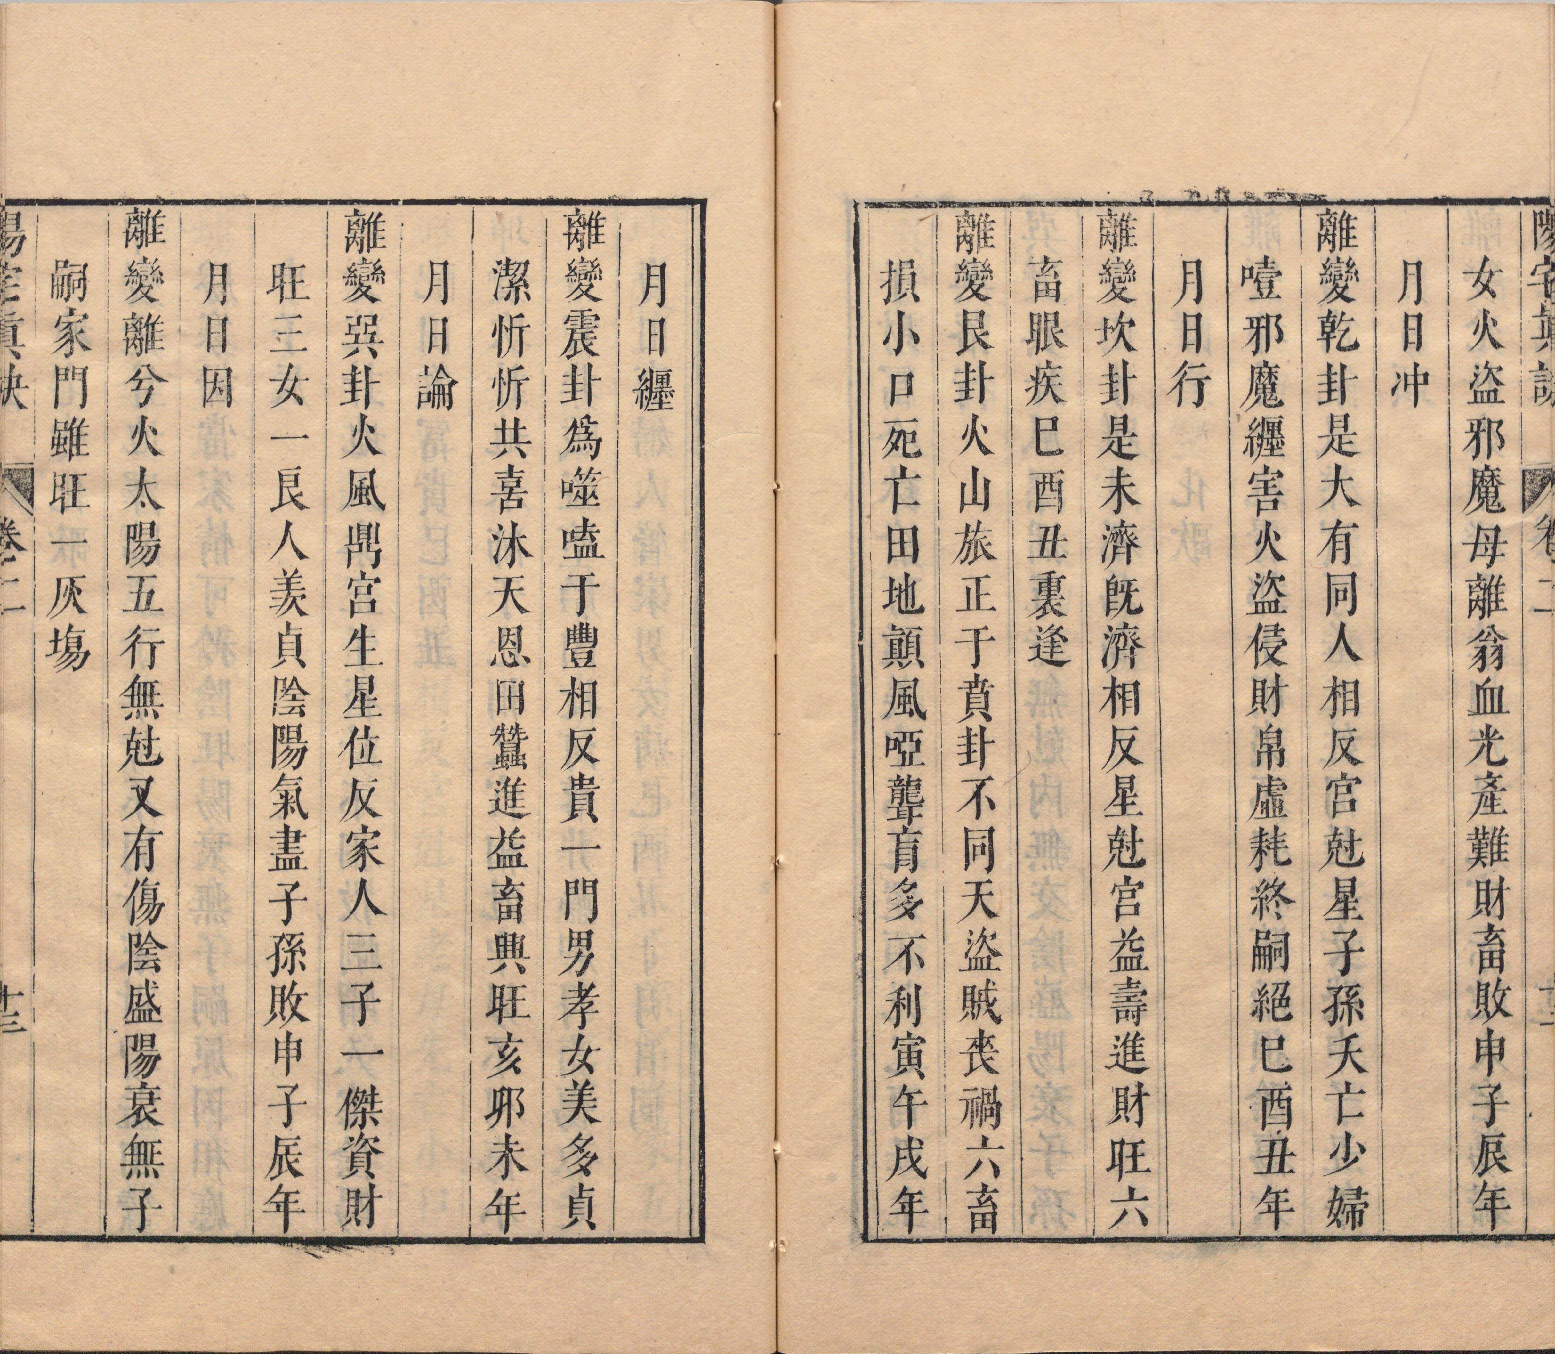 陽宅眞訣 卷二 十二
女火盜邪魔母離翁血光產難財畜敗申子辰年
月日冲
離變乾卦是大有同人相反宮尅星子孫夭亡少婦
噎邪魔纏害火盜侵財帛虛耗終嗣絕巳酉丑年
月日行
離變坎卦是未濟旣濟相反星尅宮益壽進財旺六
畜眼疾巳酉丑裏逢
離變艮卦火山旅正于賁卦不同天盜賊喪禍六畜
損小口死亡田地顛風啞聾盲多不利寅午戌年
月日纏
離變震卦爲噬嗑于豐相反貴一門男孝女美多貞
潔忻忻共喜沐天恩田蠶進益畜興旺亥卯未年
月日論
離變巽卦火風鼎宮生星位反家人三子一傑資財
旺三女一良人羨貞陰陽氣盡子孫敗申子辰年
月日因
離變離兮火太陽五行無尅又有傷陰盛陽衰無子
嗣家門雖旺一灰塲
陽宅眞訣 卷二 十三